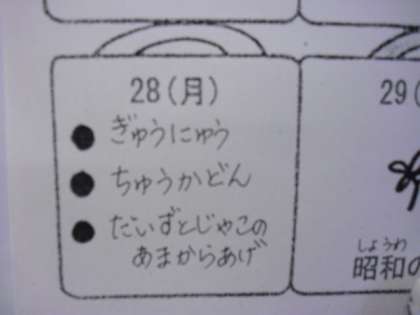 28(月)
● ぎゅうにゅう
● ちゅうかどん
● だいずとじゃこの
あまからあげ
29(
しょうわ
昭和の